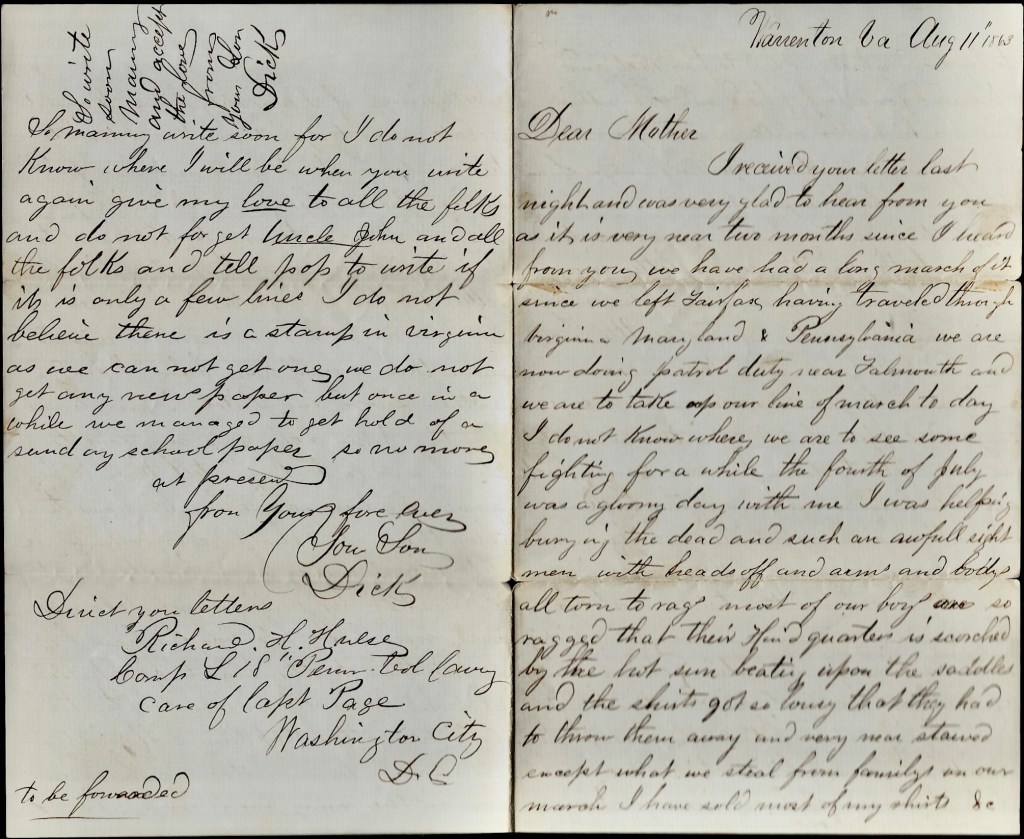 Warrenton Va Aug 11" 1863
Dear Mother
I received your letter last
night and was very glad to hear from you
as it is very near two months since I heard
from you, we have had a long march of it
since we left Fairfax, having traveled through
Virginia Maryland & Pennsylvania we are
now doing patrol duty near Falmouth and
we are to take up our line of march to day
I do not Know where, we are to see some
fighting for a while the fourth of July
was a gloomy day with me I was helping
burying the dead and such an awfull sight
men with heads off and arms and bodys
all torn to rags most of our boys are so
ragged that their Hind quarters is scorched
by the hot sun beating upon the saddles
and the shirts got so lousy that they had
to throw them away and very near starved
except what we steal from familys on our
march I have sold most of my shirts &c
So mammy write soon for I do not
Know where I will be when you write
again give my love to all the folks
and do not forget Uncle John and all
the folks and tell pop to write if
it is only a few lines I do not
believe there is a stamp in virginia
as we can not get one, we do not
get any news paper but once in a
while we managed to get hold of a
sunday school paper so no more
at present
from Yours fore aver
You Son
Dick
Direct you letters
Richard. H. Hulse
Comp L 18" Penn. Vol Cavry
care of Capt Page
Washington City
D. C
to be forwarded
So write
soon
Mammy
and accept
the love
from
Your Son
Dick